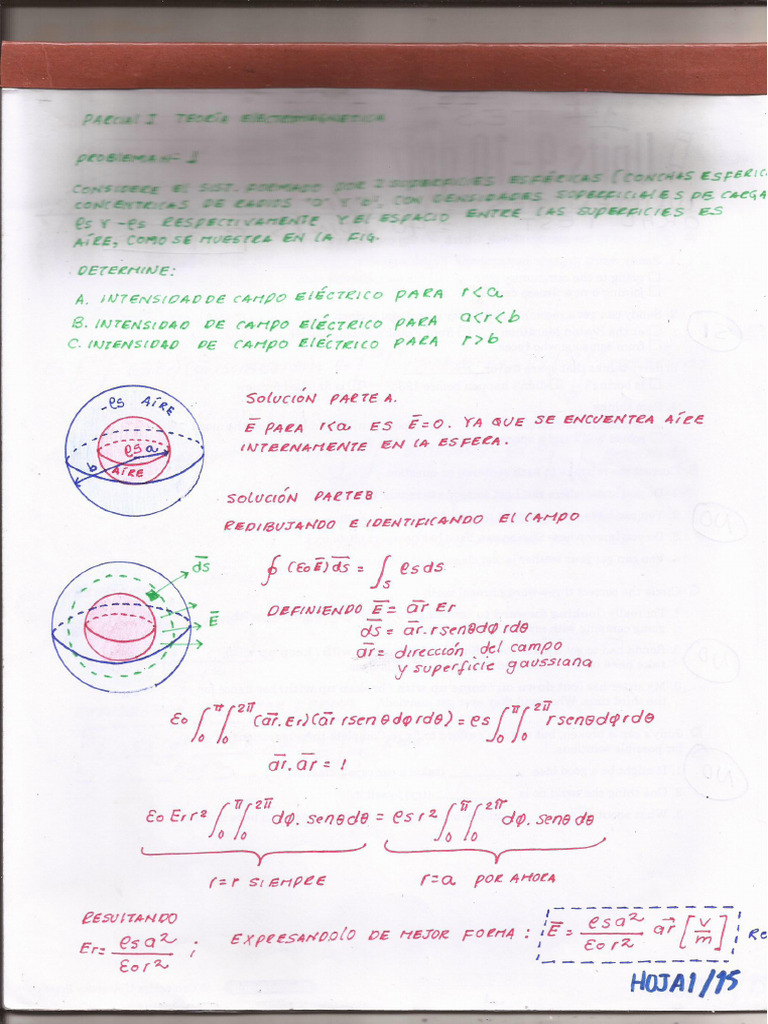 PARCIAL I TEORÍA ELECTROMAGNETICA
PROBLEMA Nº 1
CONSIDERE EL SIST. FORMADO POR 2 SUPERFICIES ESFÉRICAS (CONCHAS ESFERIC
CONCENTRICAS DE RADIOS "a" Y "b", CON DENSIDADES SUPERFICIALES DE CARGA
ρs Y -ρs RESPECTIVAMENTE Y EL ESPACIO ENTRE LAS SUPERFICIES ES
AÍRE, COMO SE MUESTRA EN LA FIG.
DETERMINE:
A. INTENSIDAD DE CAMPO ELÉCTRICO PARA r<a
B. INTENSIDAD DE CAMPO ELÉCTRICO PARA a<r<b
C. INTENSIDAD DE CAMPO ELÉCTRICO PARA r>b
-ρs AÍRE
ρs a
b
AÍRE
SOLUCIÓN PARTE A.
E̅ PARA r<a ES E̅=0. YA QUE SE ENCUENTRA AÍRE
INTERNAMENTE EN LA ESFERA.
SOLUCIÓN PARTE B
REDIBUJANDO E IDENTIFICANDO EL CAMPO
d̅s̅
E̅
∮(εo E̅) d̅s̅ = ∫s ρs ds
DEFINIENDO E̅ = a̅r̅ Er
d̅s̅ = a̅r̅. r senθ dφ r dθ
a̅r̅ = dirección del campo
y superficie gaussiana
εo ∫₀^π ∫₀^2π (a̅r̅. Er)(a̅r̅ r sen θ dφ r dθ) = ρs ∫₀^π ∫₀^2π r senθ dφ r dθ
a̅r̅. a̅r̅ = 1
εo Er r² ∫₀^π ∫₀^2π dφ. senθ dθ = ρs r² ∫₀^π ∫₀^2π dφ. senθ dθ
r=r SIEMPRE r=a POR AHORA
RESULTANDO
Er = ρs a² / εo r² ; EXPRESANDOLO DE MEJOR FORMA : E̅ = ρs a² / εo r² a̅r̅ [V/m]
HOJA 1/15